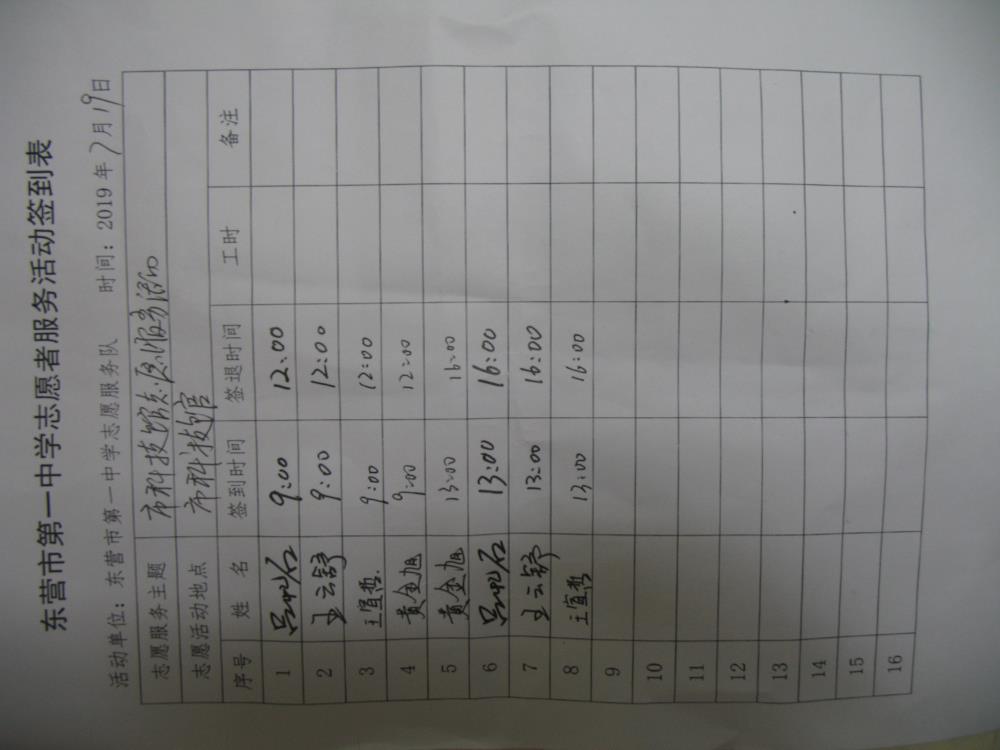 东营市第一中学志愿者服务活动签到表
活动单位：东营市第一中学志愿服务队 时间：2019年7月19日
志愿服务主题 市科技馆志愿服务活动
志愿活动地点 市科技馆
序号 姓名 签到时间 签退时间 工时 备注
1 9:00 12:00
2 王云舒 9:00 12:00
3 王宜哲 9:00 12:00
4 黄金旭 9:00 12:00
5 黄金旭 13:00 16:00
6 13:00 16:00
7 王云舒 13:00 16:00
8 王宜哲 13:00 16:00
9
10
11
12
13
14
15
16